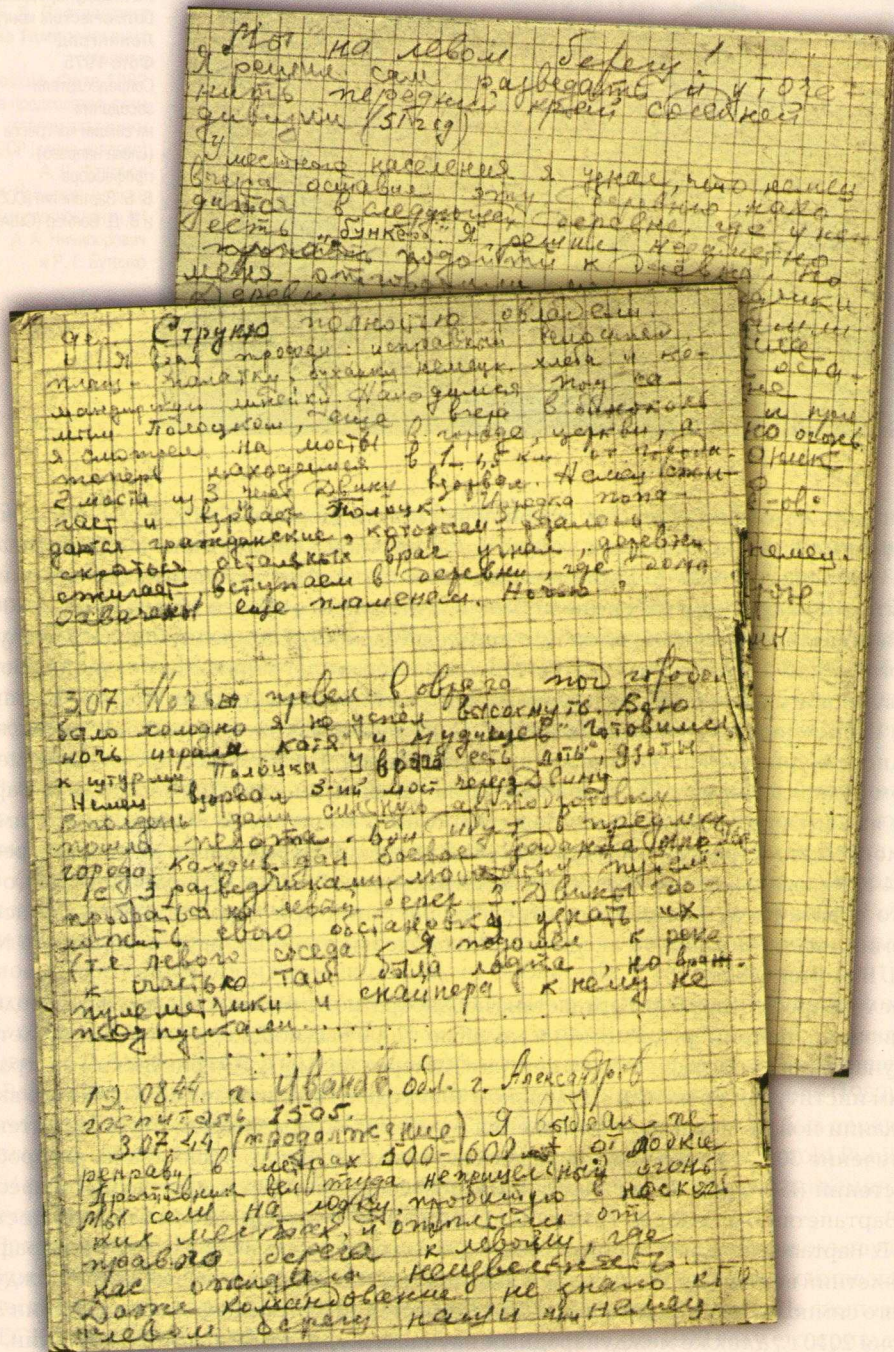 Мы на левом берегу!
Я решил сам разведать и уточ-
нить передний край соседней
дивизии (51 гсд)
У местного населения я узнал, что немец
вчера оставил эту деревню, нахо-
дится в следующей деревне, где у него
есть „бункера". Я решил незаметно
подойти к деревне, но
меня отговорили
дер. Струню полностью овладели.
Я взял трофеи: исправный велосипед,
плащ-палатку, буханку немецк. хлеба и ко-
мандирскую линейку. Находимся под са-
мым Полоцком, еще вчера в бинокль
я смотрел на мосты в городе, церкви, а
теперь находимся в 1-1,5 км от города.
2 моста из 3 через Двину взорвал. Немец сжи-
гает и взрывает Полоцк. Изредка попа-
даются гражданские, которым удалось
скрыться, остальных враг угнал, деревни
сжигает, вступаем в деревни, где дома
охвачены еще пламенем. Ночью
3.07 Ночь провел в овраге под городом
было холодно я не успел высохнуть. Всю
ночь играла „Катя" и „Мудищев" готовимся
к штурму Полоцка. У врага есть доты, дзоты
Немец взорвал 3-ий мост через Двину
В полдень дали сильную артподготовку
пошла пехота. Бои идут в предместье
города. Комдив дал боевое задание мне
с 3 разведчиками любым путем
пробраться на левый берег З. Двины до-
ложить свою обстановку узнать их
(т.е. левого соседа). Я подошел к реке
к счастью там была лодка, но враж.
пулеметчики и снайпера к нему не
подпускали......
19.08.44 г. Иванов. обл. г. Александров
госпиталь 1505.
3.07.44 (продолжение) Я выбрал пе-
реправу, в метрах 500-600 от лодки
Противник вел туда неприцельный огонь.
Мы сели на лодку, пробитую в несколь-
ких местах, и отплыли от
правого берега к левому, где
нас ожидала неизвестность
Даже командование не знало кто
на левом берегу наши или немец.